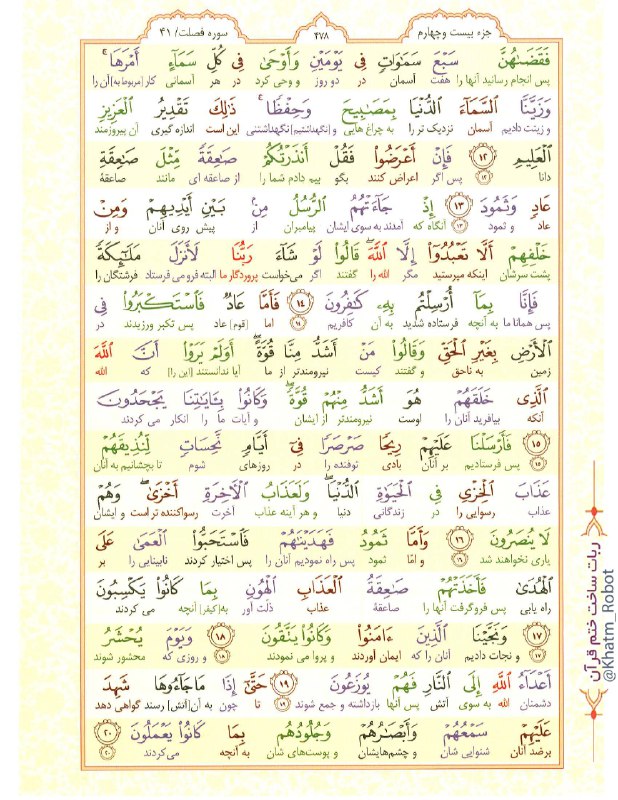 جزء بیست وچهارم
۴۷۸
سوره فصلت/ ۴۱
فَقَضَىٰهُنَّ سَبْعَ سَمَٰوَاتٍ فِى يَوْمَيْنِ وَأَوْحَىٰ فِى كُلِّ سَمَآءٍ أَمْرَهَا ۚ
پس انجام رسانید آنها را هفت آسمان در دو روز و وحی کرد در هر آسمانی کار [مربوط به] آن را
وَزَيَّنَّا ٱلسَّمَآءَ ٱلدُّنْيَا بِمَصَٰبِيحَ وَحِفْظًا ۚ ذَٰلِكَ تَقْدِيرُ ٱلْعَزِيزِ
و زینت دادیم آسمان نزدیک تر را به چراغ هایی و [نگهداشتیم] نگهداشتنی این است اندازه گیری آن پیروزمند
ٱلْعَلِيمِ ۱۲ فَإِنْ أَعْرَضُوا۟ فَقُلْ أَنذَرْتُكُمْ صَٰعِقَةً مِّثْلَ صَٰعِقَةِ
دانا ۱۲ پس اگر اعراض کنند بگو بیم دادم شما را از صاعقه ای مانند صاعقهٔ
عَادٍ وَثَمُودَ ۱۳ إِذْ جَآءَتْهُمُ ٱلرُّسُلُ مِنۢ بَيْنِ أَيْدِيهِمْ وَمِنْ
عاد و ثمود ۱۳ آنگاه که آمدند به سوی ایشان پیامبران از پیش روی آنان و از
خَلْفِهِمْ أَلَّا تَعْبُدُوٓا۟ إِلَّا ٱللَّهَ ۖ قَالُوا۟ لَوْ شَآءَ رَبُّنَا لَأَنزَلَ مَلَٰٓئِكَةً
پشت سرشان اینکه مپرستید مگر الله را گفتند اگر می‌خواست پروردگار ما البته فرو می فرستاد فرشتگان را
فَإِنَّا بِمَآ أُرْسِلْتُم بِهِۦ كَٰفِرُونَ ۱۴ فَأَمَّا عَادٌ فَٱسْتَكْبَرُوا۟ فِى
پس همانا ما به آنچه فرستاده شدید به آن کافریم ۱۴ اما [قوم] عاد پس تکبر ورزیدند در
ٱلْأَرْضِ بِغَيْرِ ٱلْحَقِّ وَقَالُوا۟ مَنْ أَشَدُّ مِنَّا قُوَّةً ۖ أَوَلَمْ يَرَوْا۟ أَنَّ ٱللَّهَ
زمین به ناحق و گفتند کیست نیرومندتر از ما آیا ندانستند [این را] که الله
ٱلَّذِى خَلَقَهُمْ هُوَ أَشَدُّ مِنْهُمْ قُوَّةً ۖ وَكَانُوا۟ بِـَٔايَٰتِنَا يَجْحَدُونَ
آنکه بیافرید آنان را اوست نیرومندتر از ایشان و آیات ما را انکار می کردند
۱۵ فَأَرْسَلْنَا عَلَيْهِمْ رِيحًا صَرْصَرًا فِىٓ أَيَّامٍ نَّحِسَاتٍ لِّنُذِيقَهُمْ
۱۵ پس فرستادیم بر آنان بادی توفنده را در روزهای شوم تا بچشانیم به آنان
عَذَابَ ٱلْخِزْىِ فِى ٱلْحَيَوٰةِ ٱلدُّنْيَا ۖ وَلَعَذَابُ ٱلْءَاخِرَةِ أَخْزَىٰ ۖ وَهُمْ
عذاب رسوایی را در زندگانی دنیا و هر آینه عذاب آخرت رسواکننده تر است و ایشان
لَا يُنصَرُونَ ۱۶ وَأَمَّا ثَمُودُ فَهَدَيْنَٰهُمْ فَٱسْتَحَبُّوا۟ ٱلْعَمَىٰ عَلَى
یاری نخواهند شد ۱۶ و امّا ثمود پس راه نمودیم آنان را پس اختیار کردند نابینایی را بر
ٱلْهُدَىٰ فَأَخَذَتْهُمْ صَٰعِقَةُ ٱلْعَذَابِ ٱلْهُونِ بِمَا كَانُوا۟ يَكْسِبُونَ
راه یابی پس فروگرفت آنها را صاعقهٔ عذاب ذلت آور به[کیفر] آنچه می کردند
۱۷ وَنَجَّيْنَا ٱلَّذِينَ ءَامَنُوا۟ وَكَانُوا۟ يَتَّقُونَ ۱۸ وَيَوْمَ يُحْشَرُ
۱۷ و نجات دادیم آنان را که ایمان آوردند و پروا می نمودند ۱۸ و روزی که محشور شوند
أَعْدَآءُ ٱللَّهِ إِلَى ٱلنَّارِ فَهُمْ يُوزَعُونَ ۱۹ حَتَّىٰٓ إِذَا مَا جَآءُوهَا شَهِدَ
دشمنان الله به سوی آتش پس آنها بازداشته و جمع شوند ۱۹ تا چون به آن[آتش] رسند گواهی دهد
عَلَيْهِمْ سَمْعُهُمْ وَأَبْصَٰرُهُمْ وَجُلُودُهُم بِمَا كَانُوا۟ يَعْمَلُونَ ۲۰
برضد آنان شنوایی شان و چشم‌هایشان و پوست‌های شان به آنچه می‌کردند ۲۰
ربات ساخت ختم قرآن
@Khatm_Robot